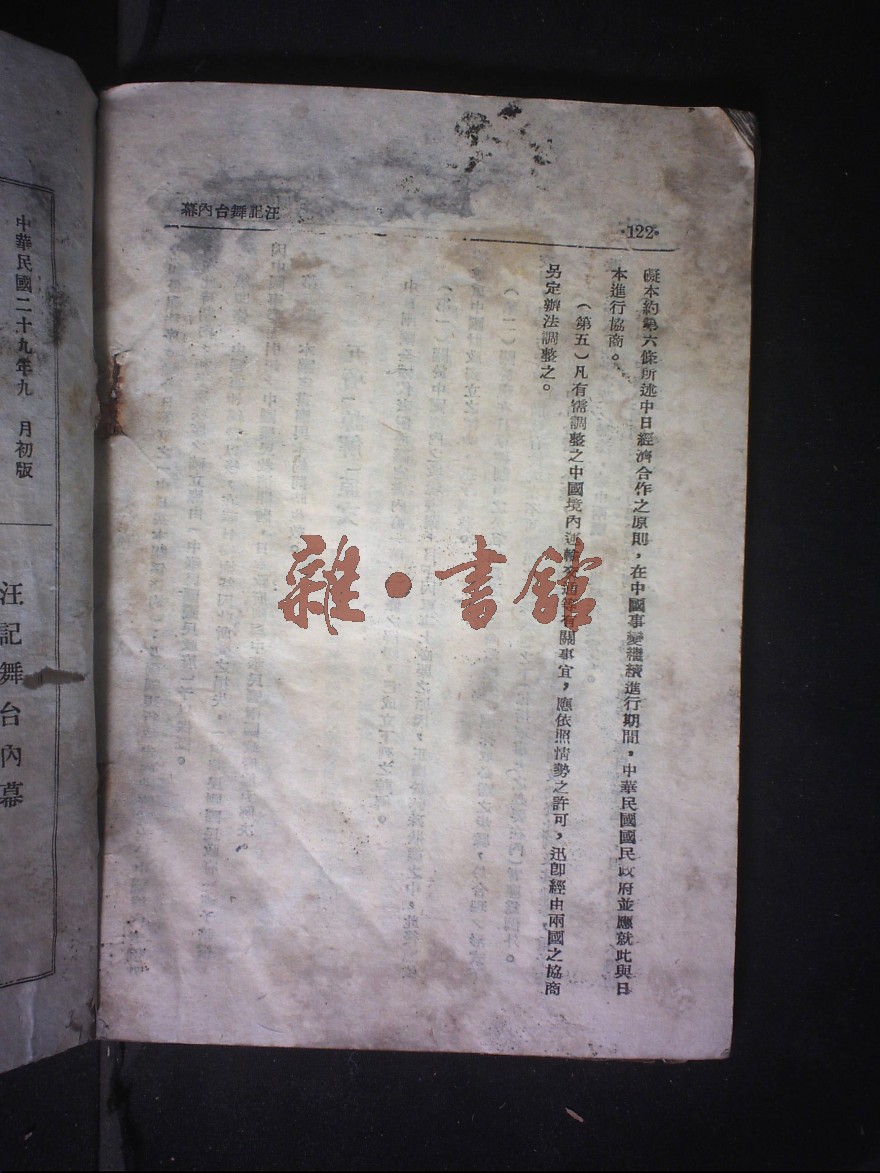 汪記舞台內幕
·122·
礙本約第六條所述中日經濟合作之原則，在中國事變繼續進行期間，中華民國國民政府並應就此與日
本進行協商。
（第五）凡有需調整之中國境內運輸交通等有關事宜，應依照情勢之許可，迅卽經由兩國之協商
另定辦法調整之。
雜·書館
中華民國二十九年九月初版
汪記舞台內幕